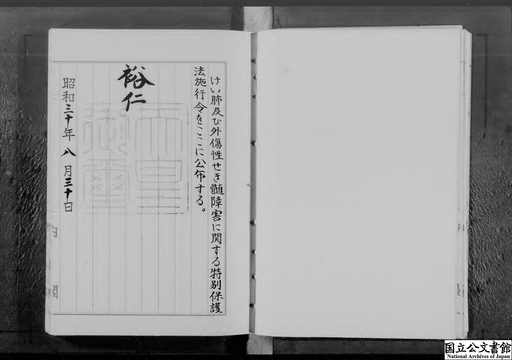 けい肺及び外傷性せき髄障害に関する特別保護
法施行令をここに公布する。
裕仁
昭和三十年八月三十日
国立公文書館
National Archives of Japan